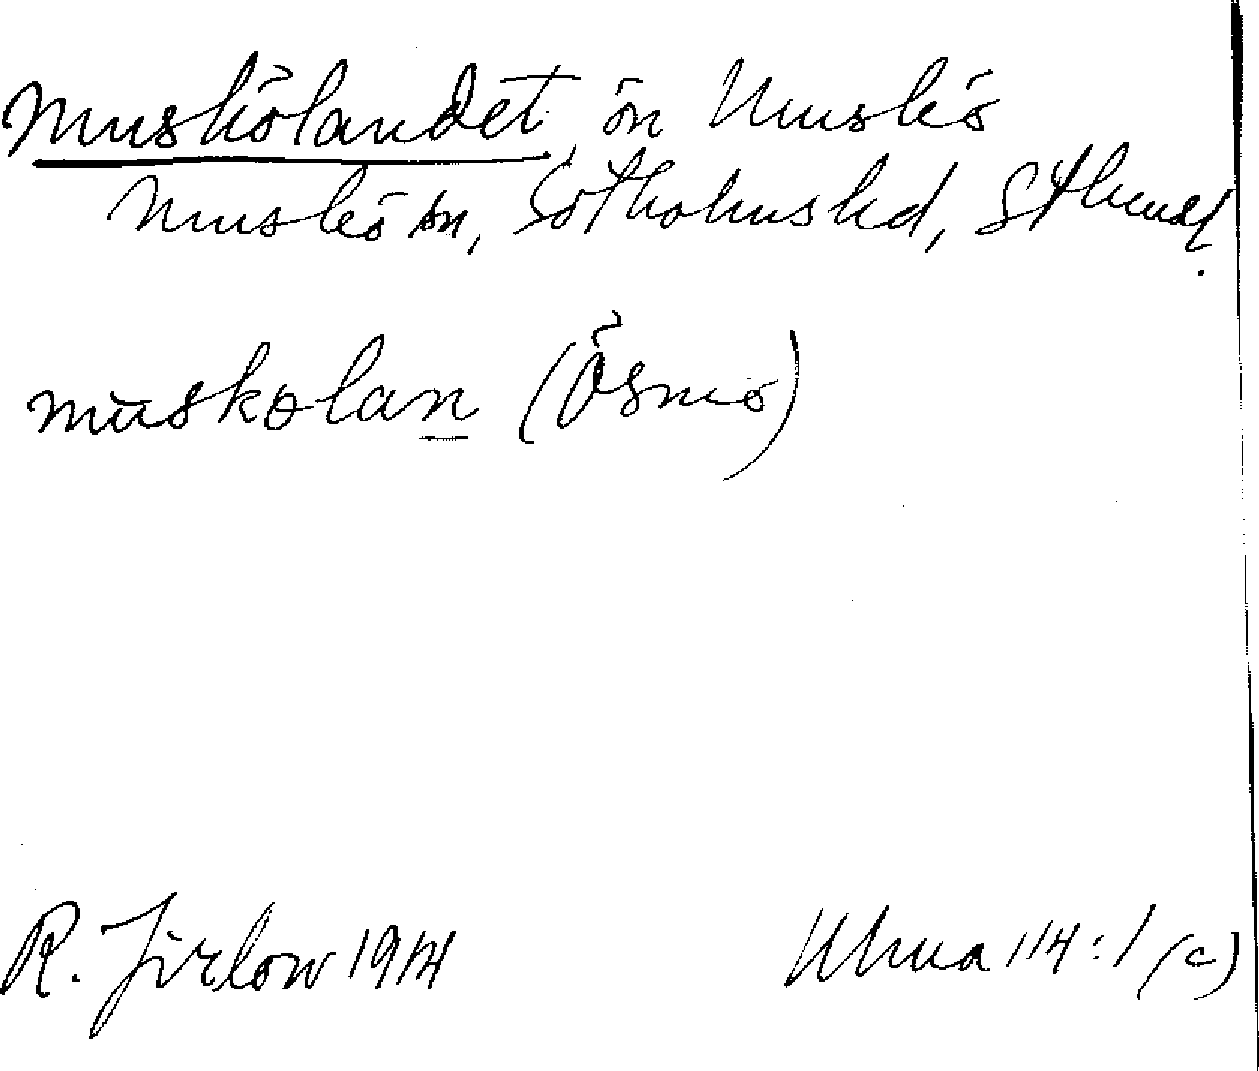 Muskölandet, ön Muskö
Muskö sn, Sotholms hd, Sthms l.
muskolan (Ösmo)
R. Jirlow 1914
Uhma 114:1 (c)